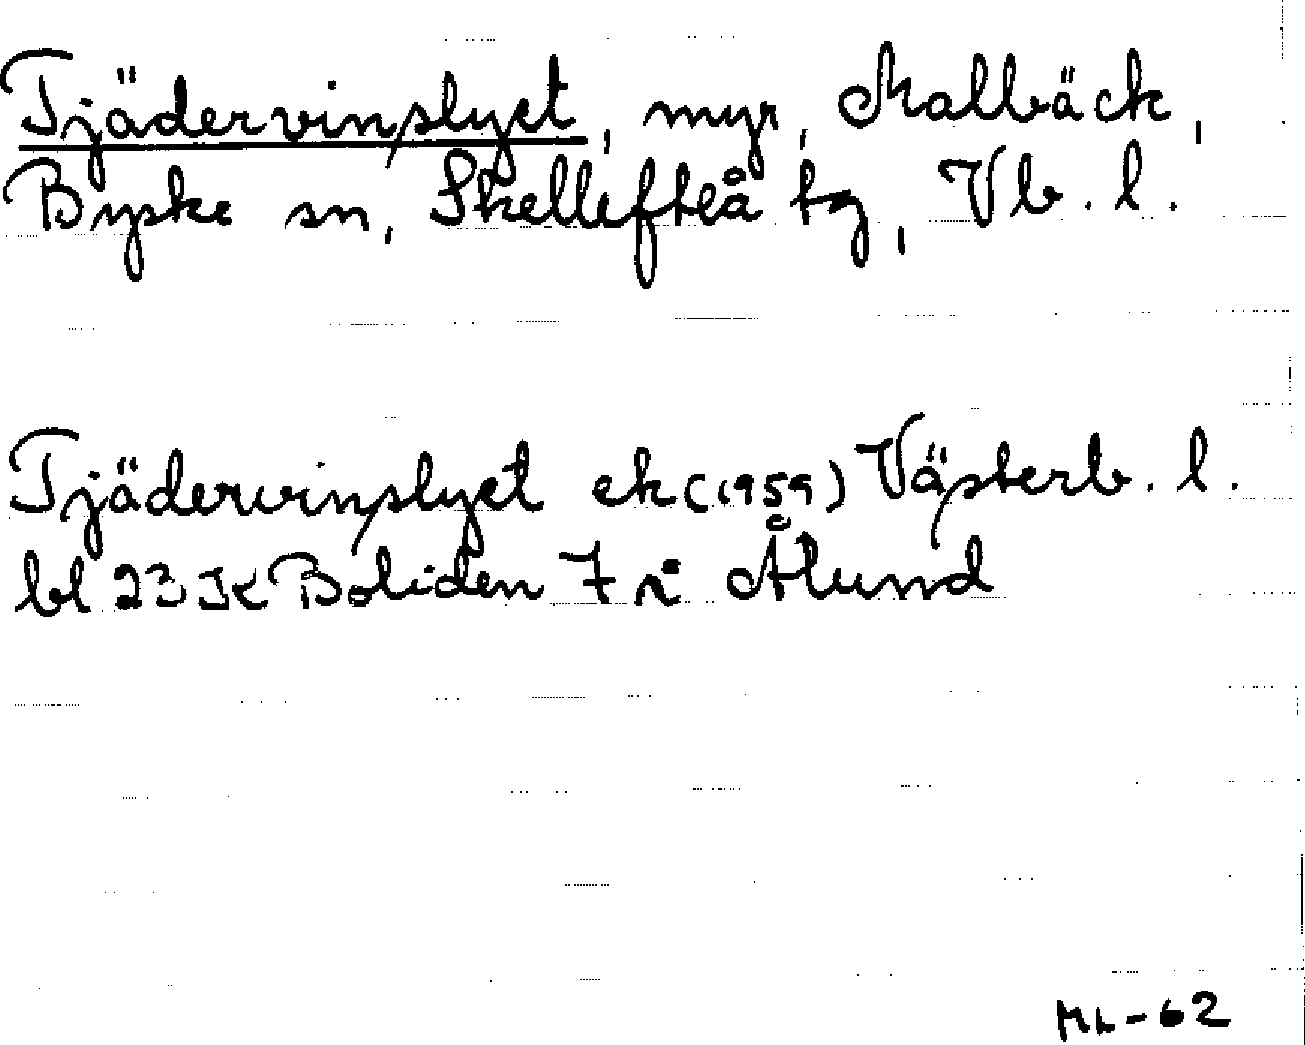 Tjädervinslyet, myr, Malbäck,
Byske sn, Skellefteå tg, Vb. l.
Tjädervinslyet ek (1959) Västerb. l.
bl 23 K Boliden 7 i Ålund
ML-62